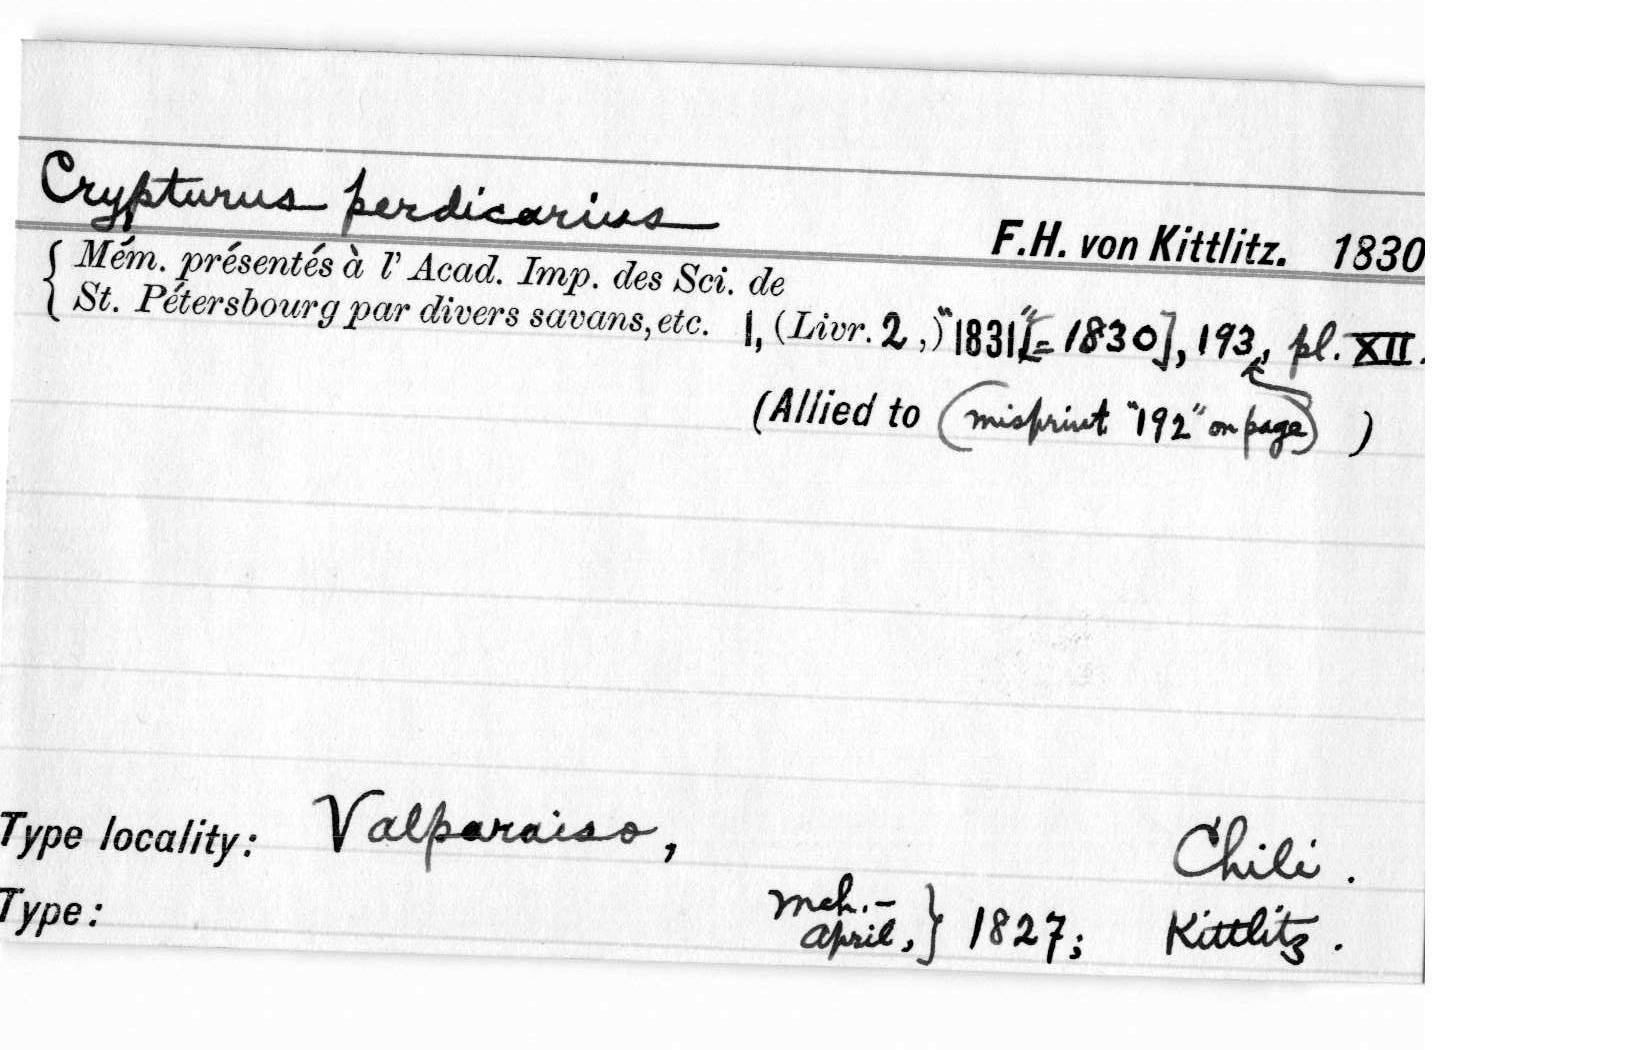 Crypturus perdicarius
F.H. von Kittlitz. 1830
{ Mém. présentés à l' Acad. Imp. des Sci. de
St. Pétersbourg par divers savans, etc. 1, (Livr. 2,) "1831" [= 1830], 193, pl. XII.
(Allied to (misprint "192" on page) )
Type locality: Valparaiso, Chili.
Type: Mch. - April, } 1827; Kittlitz.